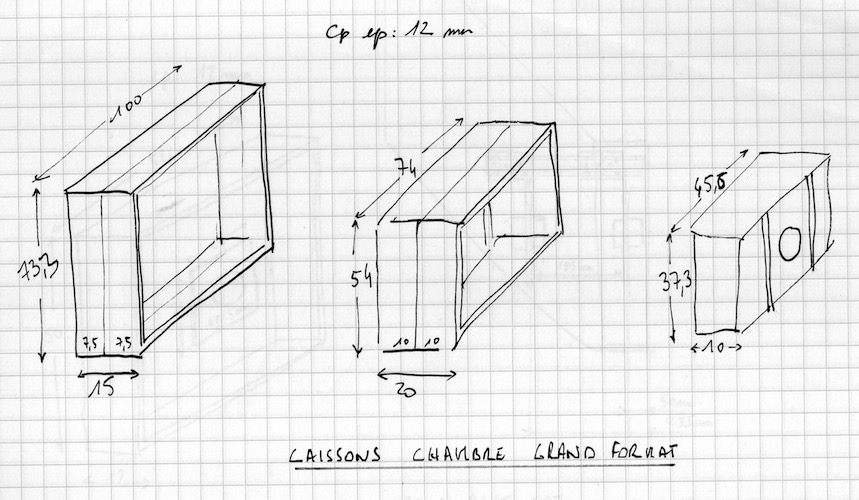 Cp ep: 12 mm
100
73,3
7,5 7,5
15
74
54
10 10
20
45,6
37,3
10
CAISSONS CHAMBRE GRAND FORMAT